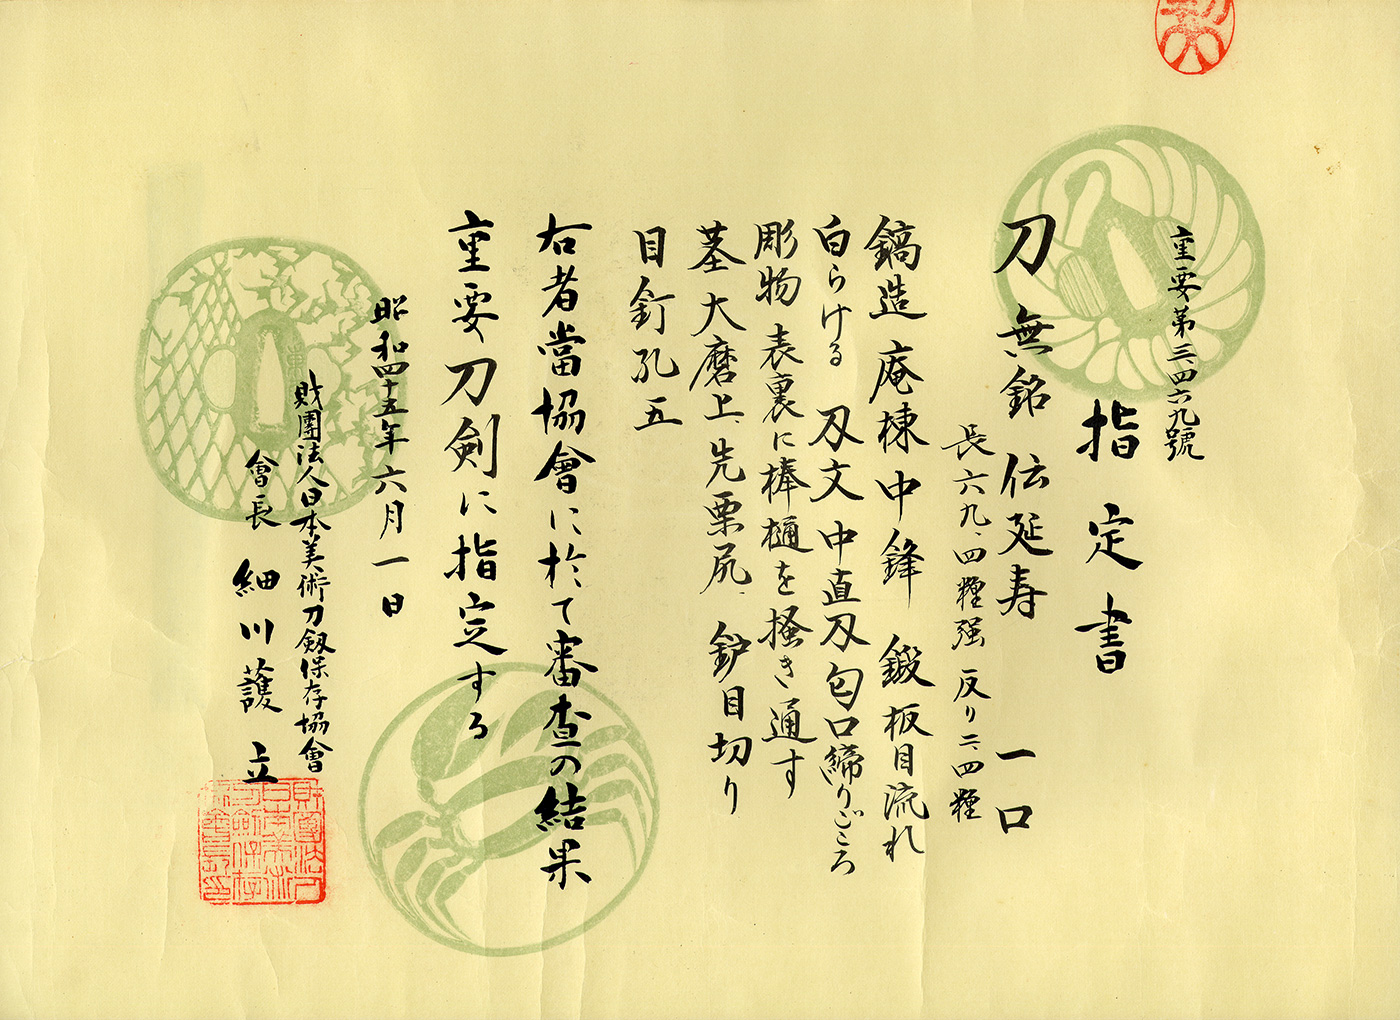 重要第三、四六九號
指定書
刀 無銘 伝延寿 一口
長 六九、四糎强 反り 二、四糎
鎬造 庵棟 中鋒 鍛 板目流れ
白らける 刃文 中直刃 匂口締りごころ
彫物 表裏に棒樋を掻き通す
茎 大磨上、先栗尻、鈩目切り
目釘孔五
右者當協會に於て審査の結果
重要刀剣に指定する
昭和四十五年六月一日
財團法人日本美術刀剱保存協會
會長 細川護立